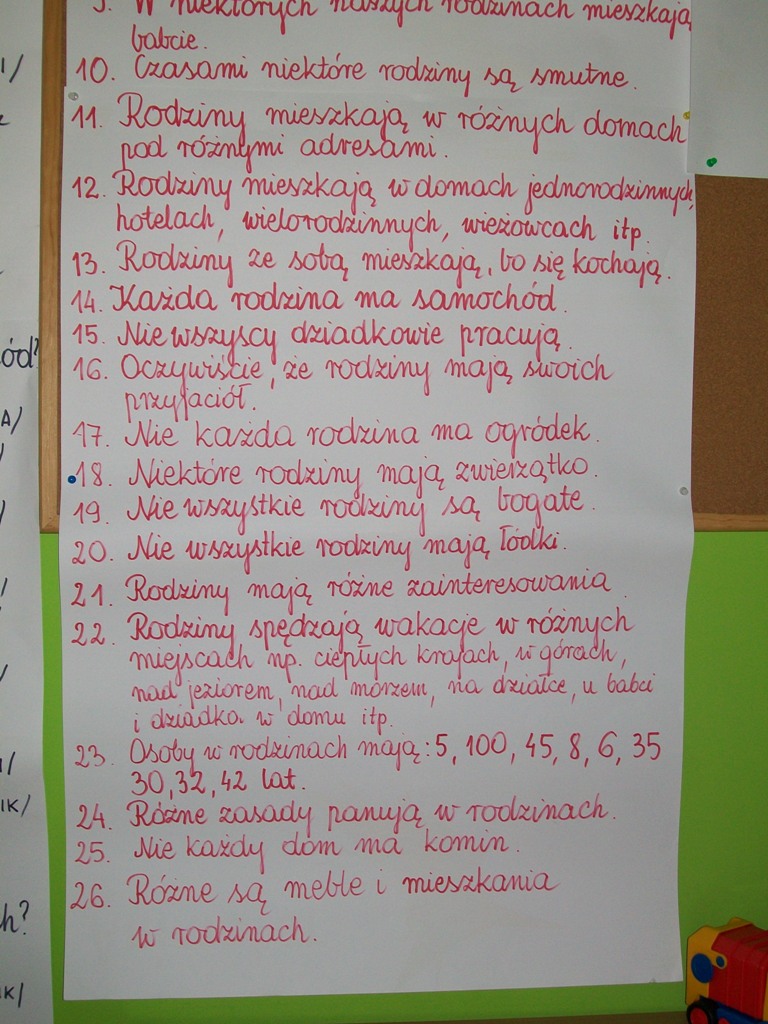 9. W niektórych naszych rodzinach mieszkają
babcie.
10. Czasami niektóre rodziny są smutne.
11. Rodziny mieszkają w różnych domach
pod różnymi adresami.
12. Rodziny mieszkają w domach jednorodzinnych,
hotelach, wielorodzinnych, wieżowcach itp.
13. Rodziny ze sobą mieszkają, bo się kochają.
14. Każda rodzina ma samochód.
15. Nie wszyscy dziadkowie pracują.
16. Oczywiście, że rodziny mają swoich
przyjaciół.
17. Nie każda rodzina ma ogródek.
18. Niektóre rodziny mają zwierzątko.
19. Nie wszystkie rodziny są bogate.
20. Nie wszystkie rodziny mają łódki.
21. Rodziny mają różne zainteresowania.
22. Rodziny spędzają wakacje w różnych
miejscach np. ciepłych krajach, w górach,
nad jeziorem, nad morzem, na działce, u babci
i dziadka w domu itp.
23. Osoby w rodzinach mają: 5, 100, 45, 8, 6, 35
30, 32, 42 lat.
24. Różne zasady panują w rodzinach.
25. Nie każdy dom ma komin.
26. Różne są meble i mieszkania
w rodzinach.
ód?
A/
IK/
h?
IK/